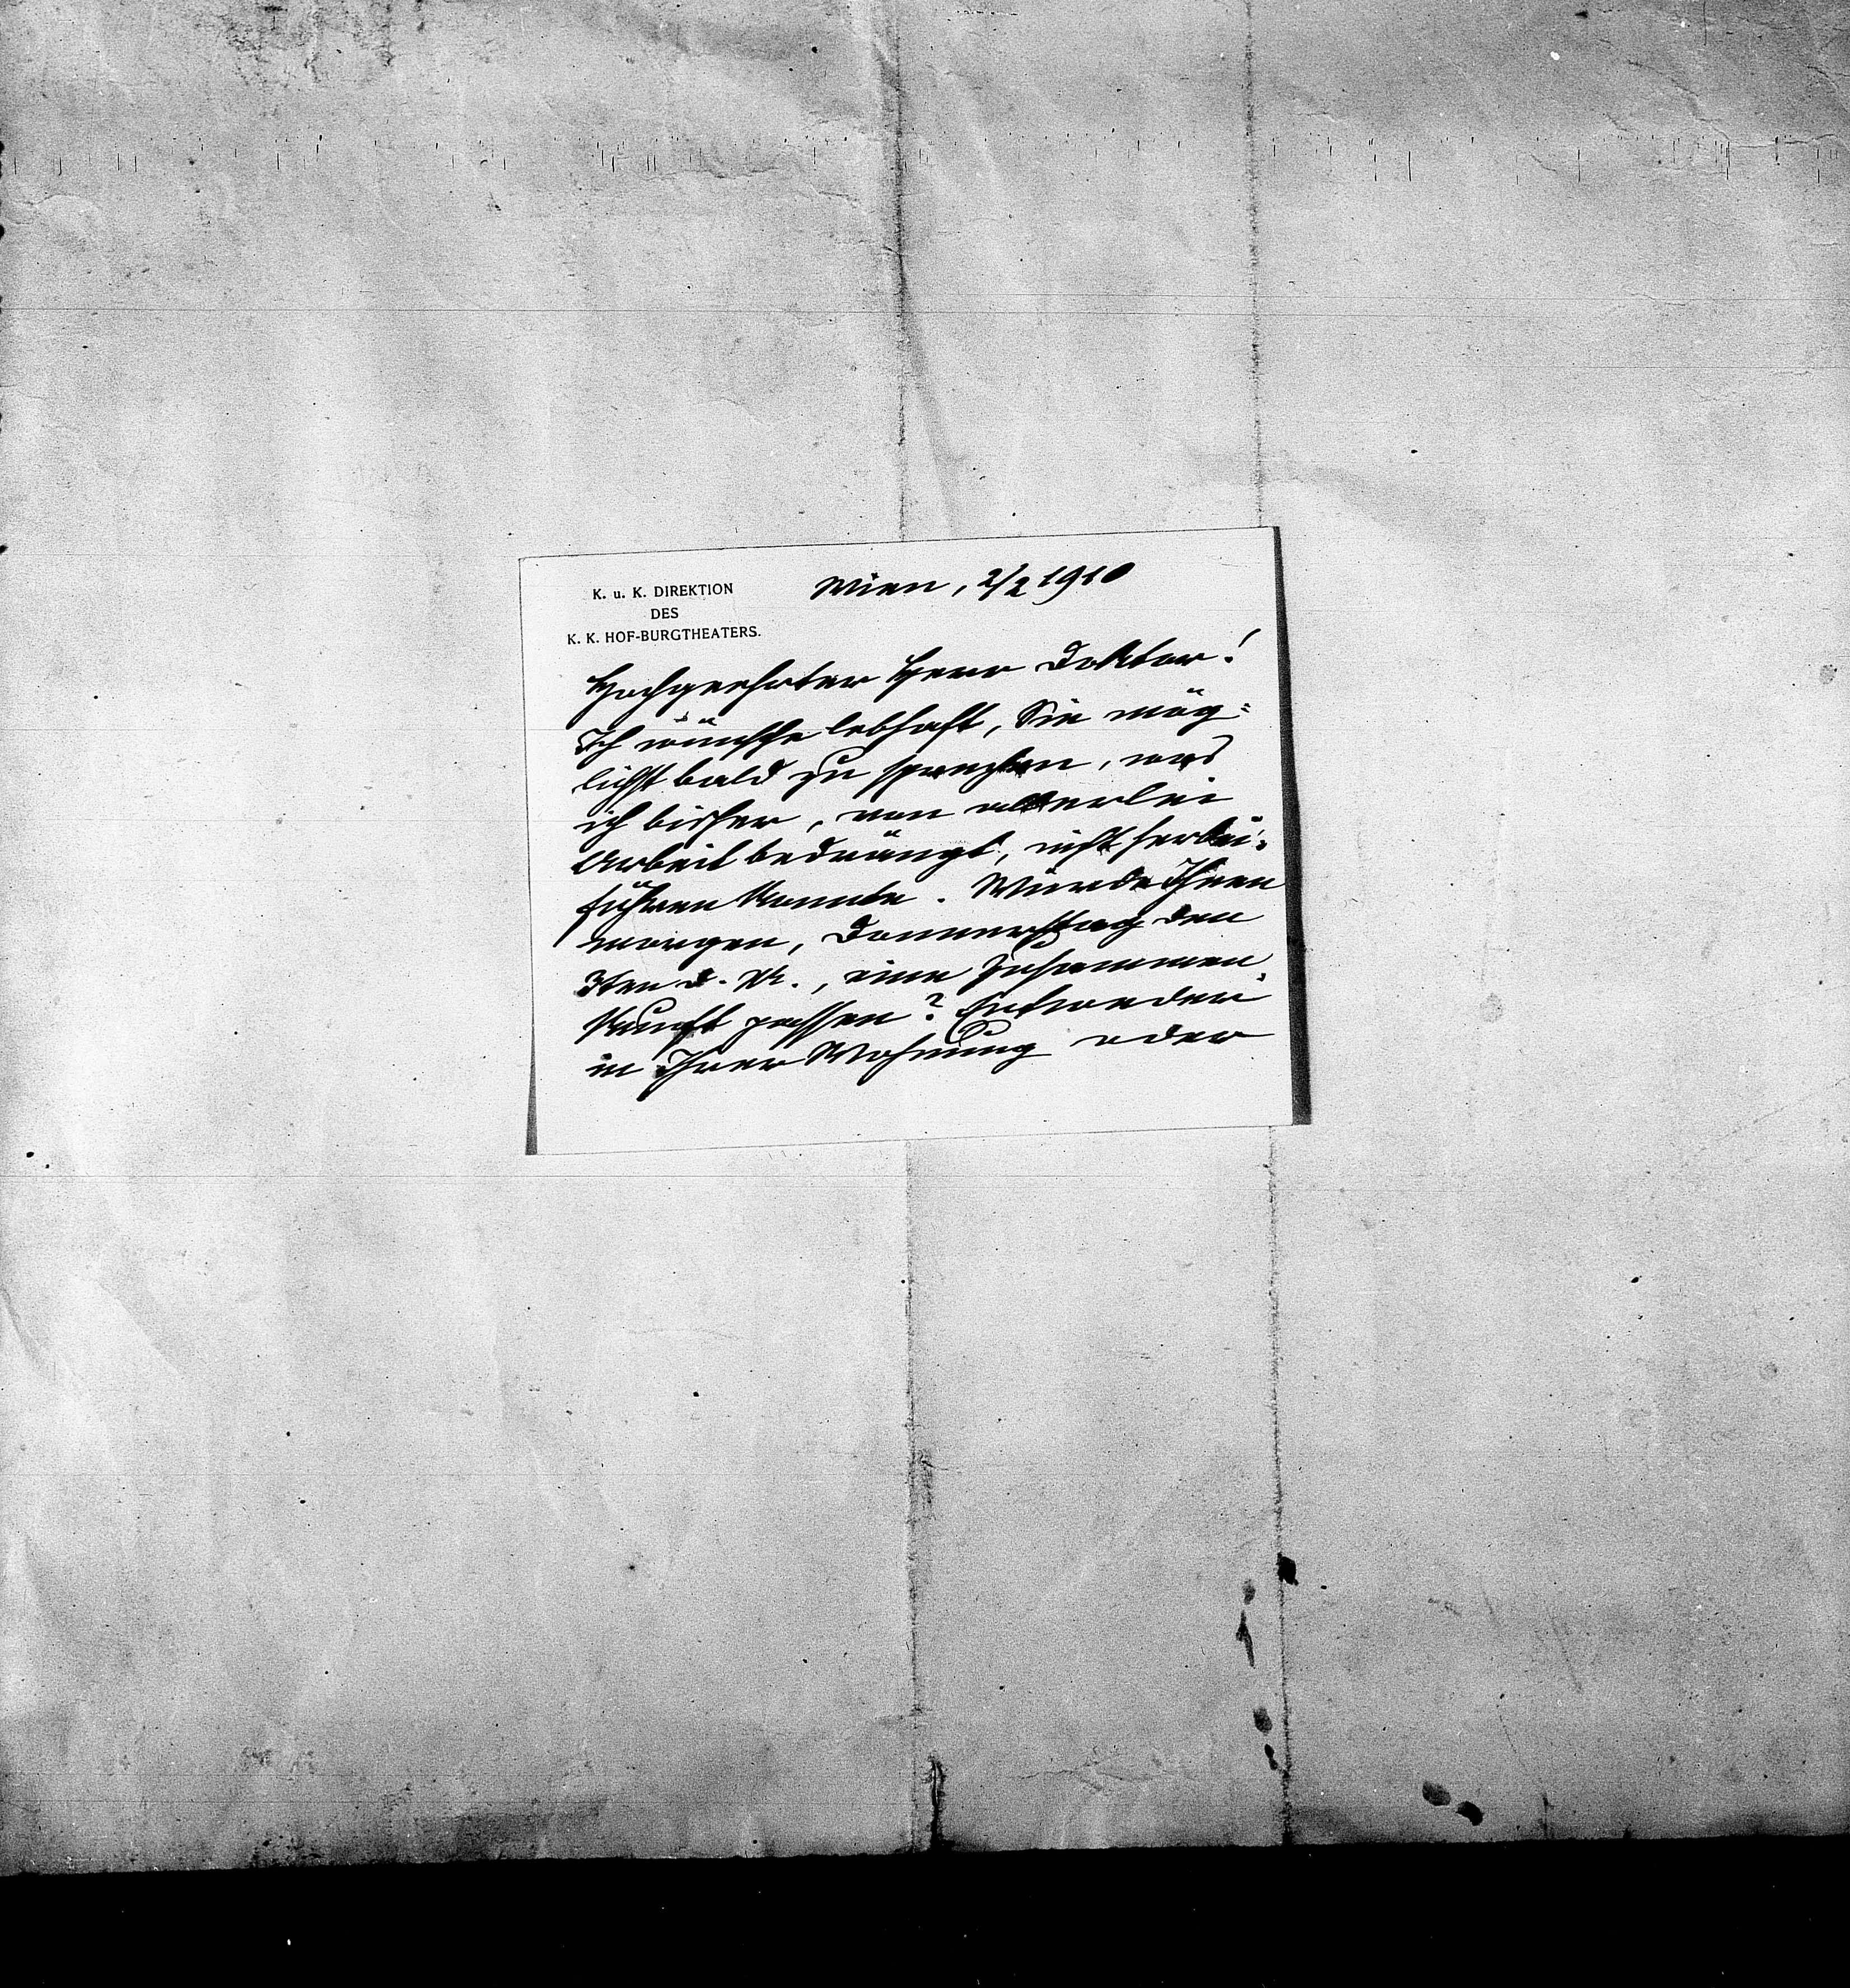 K. u. K. DIREKTION
DES
K. K. HOF-BURGTHEATERS.
Wien, 2/2 1910
Hochgeehrter Herr Doktor!
Ich wünsche lebhaft, Sie mög=
lichst bald zu sprechen, was
ich bisher, von allerlei
Arbeit bedrängt, nicht herbei=
führen konnte. Würde Ihnen
morgen, Donnerstag den
3ten d. M., eine Zusammen=
kunft passen? Entweder
in Ihrer Wohnung oder